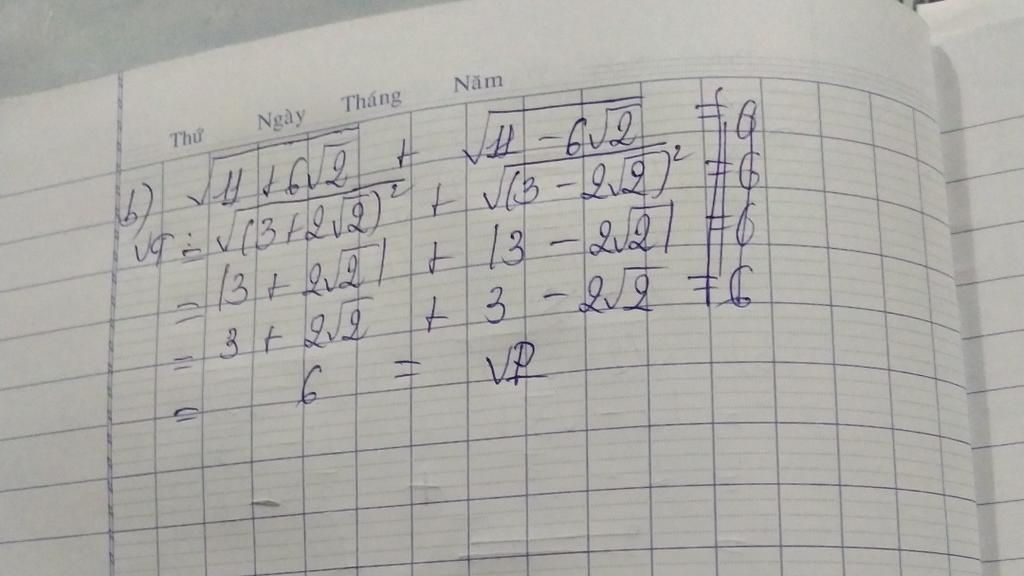 Thứ Ngày Tháng Năm
b) √11 + 6√2 + √11 − 6√2 = 6
VT = √(3 + 2√2)² + √(3 − 2√2)² = 6
= |3 + 2√2| + |3 − 2√2| = 6
= 3 + 2√2 + 3 − 2√2 = 6
= 6 = VP